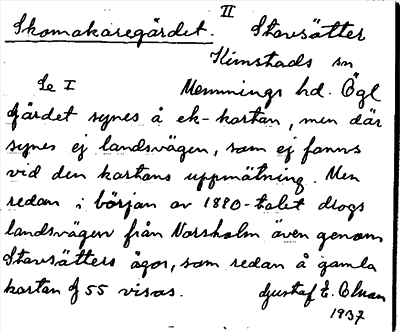 II
Skomakaregärdet. Stavsätter
Kimstads sn
Se I Memmings hd. Ögl
Gärdet synes å ek-kartan, men där
synes ej landsvägen, som ej fanns
vid den kartans uppmätning. Men
redan i början av 1880-talet drogs
landsvägen från Norsholm även genom
Stavsätters ägor, som redan å gamla
kartan G 55 visas. Gustaf E. Olsson
1937